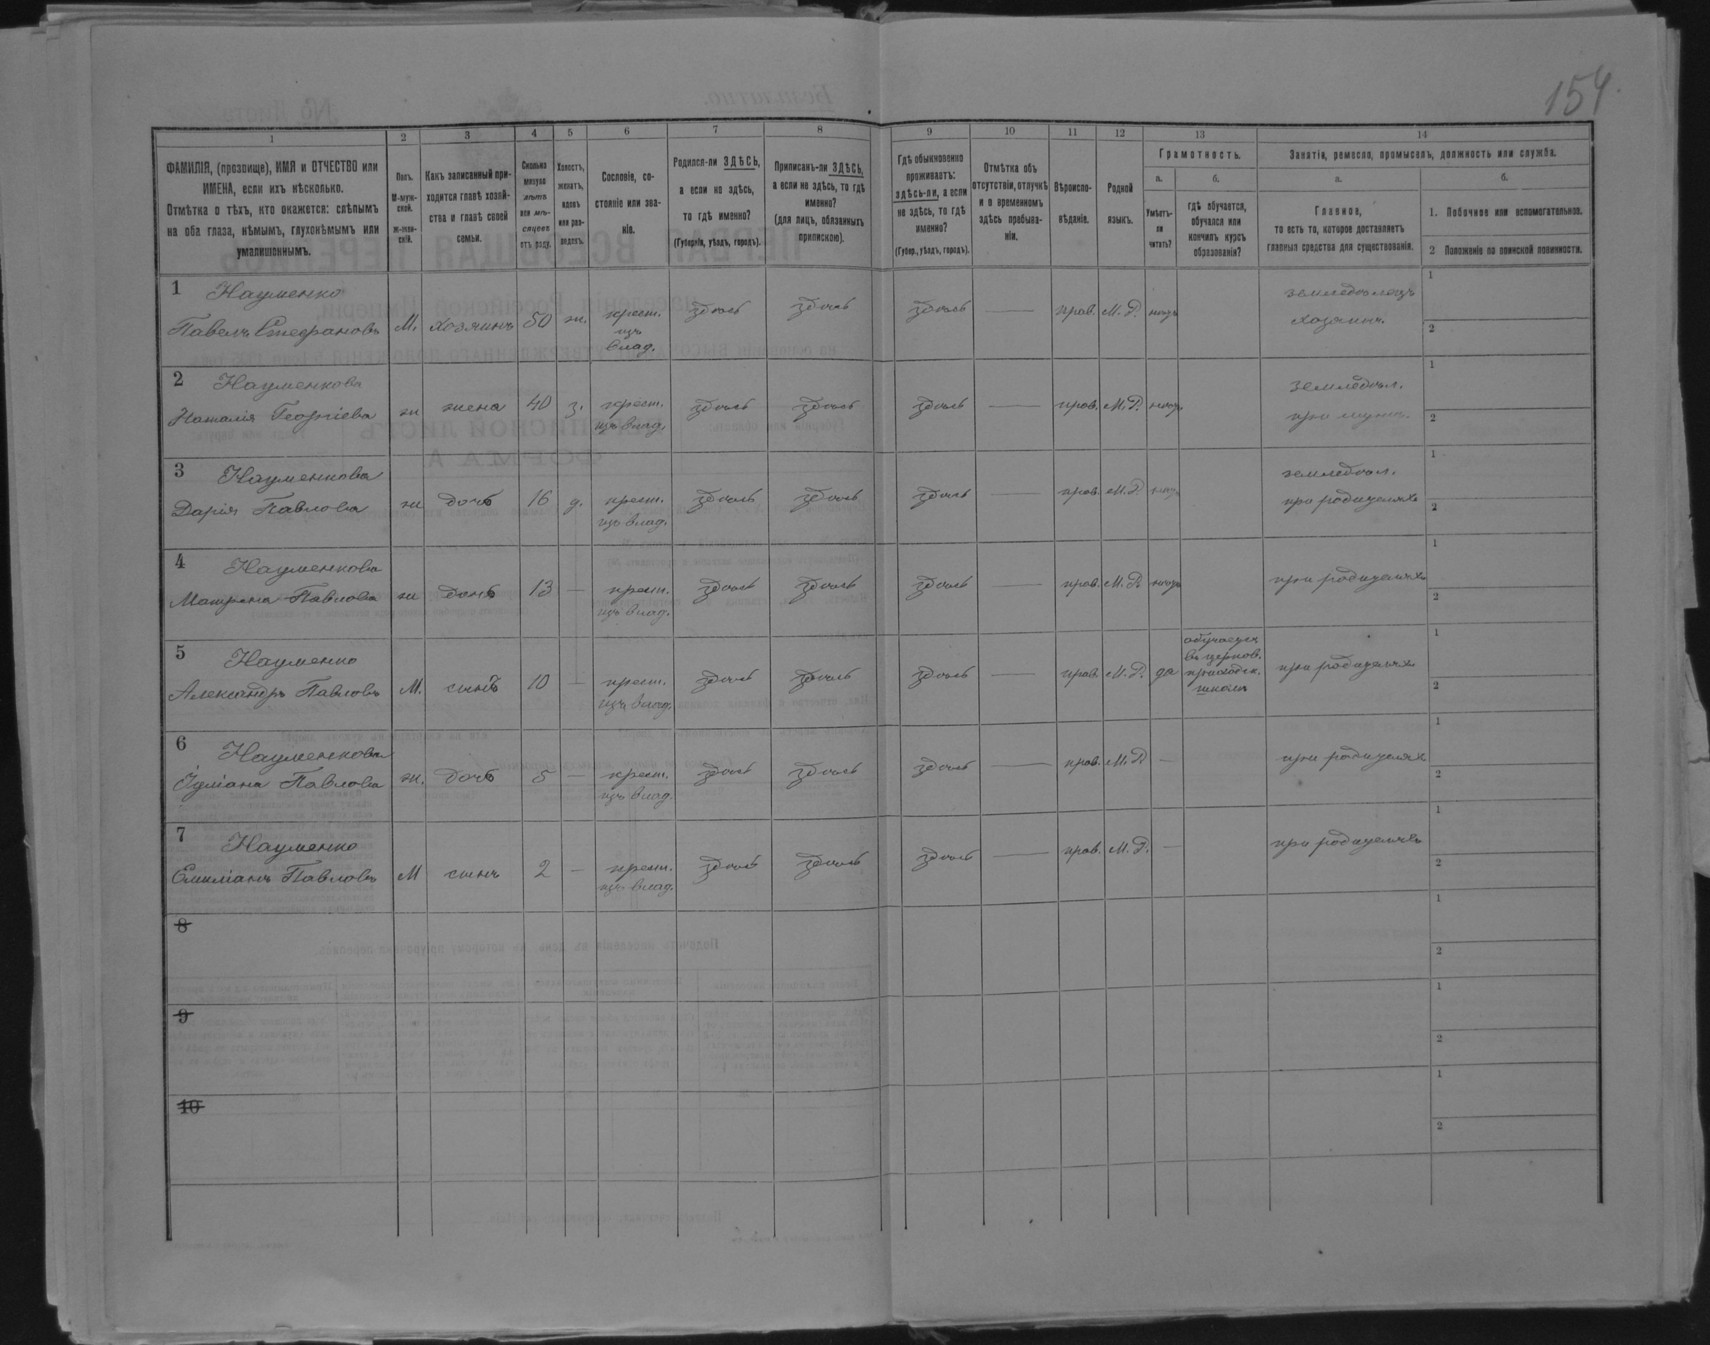 154.
1
2
3
4
5
6
7
8
9
10
11
12
13
14
ФАМИЛІЯ, (прозвище), ИМЯ и ОТЧЕСТВО или
ИМЕНА, если ихъ нѣсколько.
Отмѣтка о тѣхъ, кто окажется: слѣпымъ
на оба глаза, нѣмымъ, глухонѣмымъ или
умалишеннымъ.
Полъ.
М-муж-
ской.
Ж-жен-
скій.
Какъ записанный при-
ходится главѣ хозяй-
ства и главѣ своей
семьи.
Сколько
минуло
лѣтъ
или мѣ-
сяцевъ
отъ роду.
Холостъ,
женатъ,
вдовъ
или раз-
веденъ.
Сословіе, со-
стояніе или зва-
ніе.
Родился-ли ЗДѢСЬ,
а если не здѣсь,
то гдѣ именно?
(Губернія, уѣздъ, городъ).
Приписанъ-ли ЗДѢСЬ,
а если не здѣсь, то гдѣ
именно?
(для лицъ, обязанныхъ
припискою).
Гдѣ обыкновенно
проживаетъ:
здѣсь-ли, а если
не здѣсь, то гдѣ
именно?
(Губер., уѣздъ, городъ).
Отмѣтка объ
отсутствіи, отлучкѣ
и о временномъ
здѣсь пребыва-
ніи.
Вѣроиспо-
вѣданіе.
Родной
языкъ.
Грамотность.
а.
Умѣетъ-
ли
читать?
б.
гдѣ обучается,
обучался или
кончилъ курсъ
образованія?
Занятіе, ремесло, промыселъ, должность или служба.
а.
Главное,
то есть то, которое доставляетъ
главныя средства для существованія.
б.
1. Побочное или вспомогательное.
2 Положеніе по воинской повинности.
1 Науменко
Павелъ Стефановъ М. хозяинъ 50 ж. крест. изъ влад. здѣсь здѣсь здѣсь — прав. М.Р. нѣтъ земледѣлецъ хозяинъ. 1 2
2 Науменкова
Наталія Георгіева ж жена 40 з. крест. изъ влад. здѣсь здѣсь здѣсь — прав. М.Р. нѣтъ земледѣл. при мужѣ. 1 2
3 Науменкова
Дарія Павлова ж дочь 16 д. крест. изъ влад. здѣсь здѣсь здѣсь — прав. М.Р. нѣтъ земледѣл. при родителяхъ 1 2
4 Науменкова
Матрона Павлова ж дочь 13 — крест. изъ влад. здѣсь здѣсь здѣсь — прав. М.Р. нѣтъ при родителяхъ 1 2
5 Науменко
Александръ Павловъ М. сынъ 10 — крест. изъ влад. здѣсь здѣсь здѣсь — прав. М.Р. да обучается въ церков. приходск. школѣ при родителяхъ 1 2
6 Науменкова
Іуліана Павлова ж. дочь 5 — крест. изъ влад. здѣсь здѣсь здѣсь — прав. М.Р. — при родителяхъ 1 2
7 Науменко
Емиліанъ Павловъ М сынъ 2 — крест. изъ влад. здѣсь здѣсь здѣсь — прав. М.Р. — при родителяхъ 1 2
8 1 2
9 1 2
10 1 2